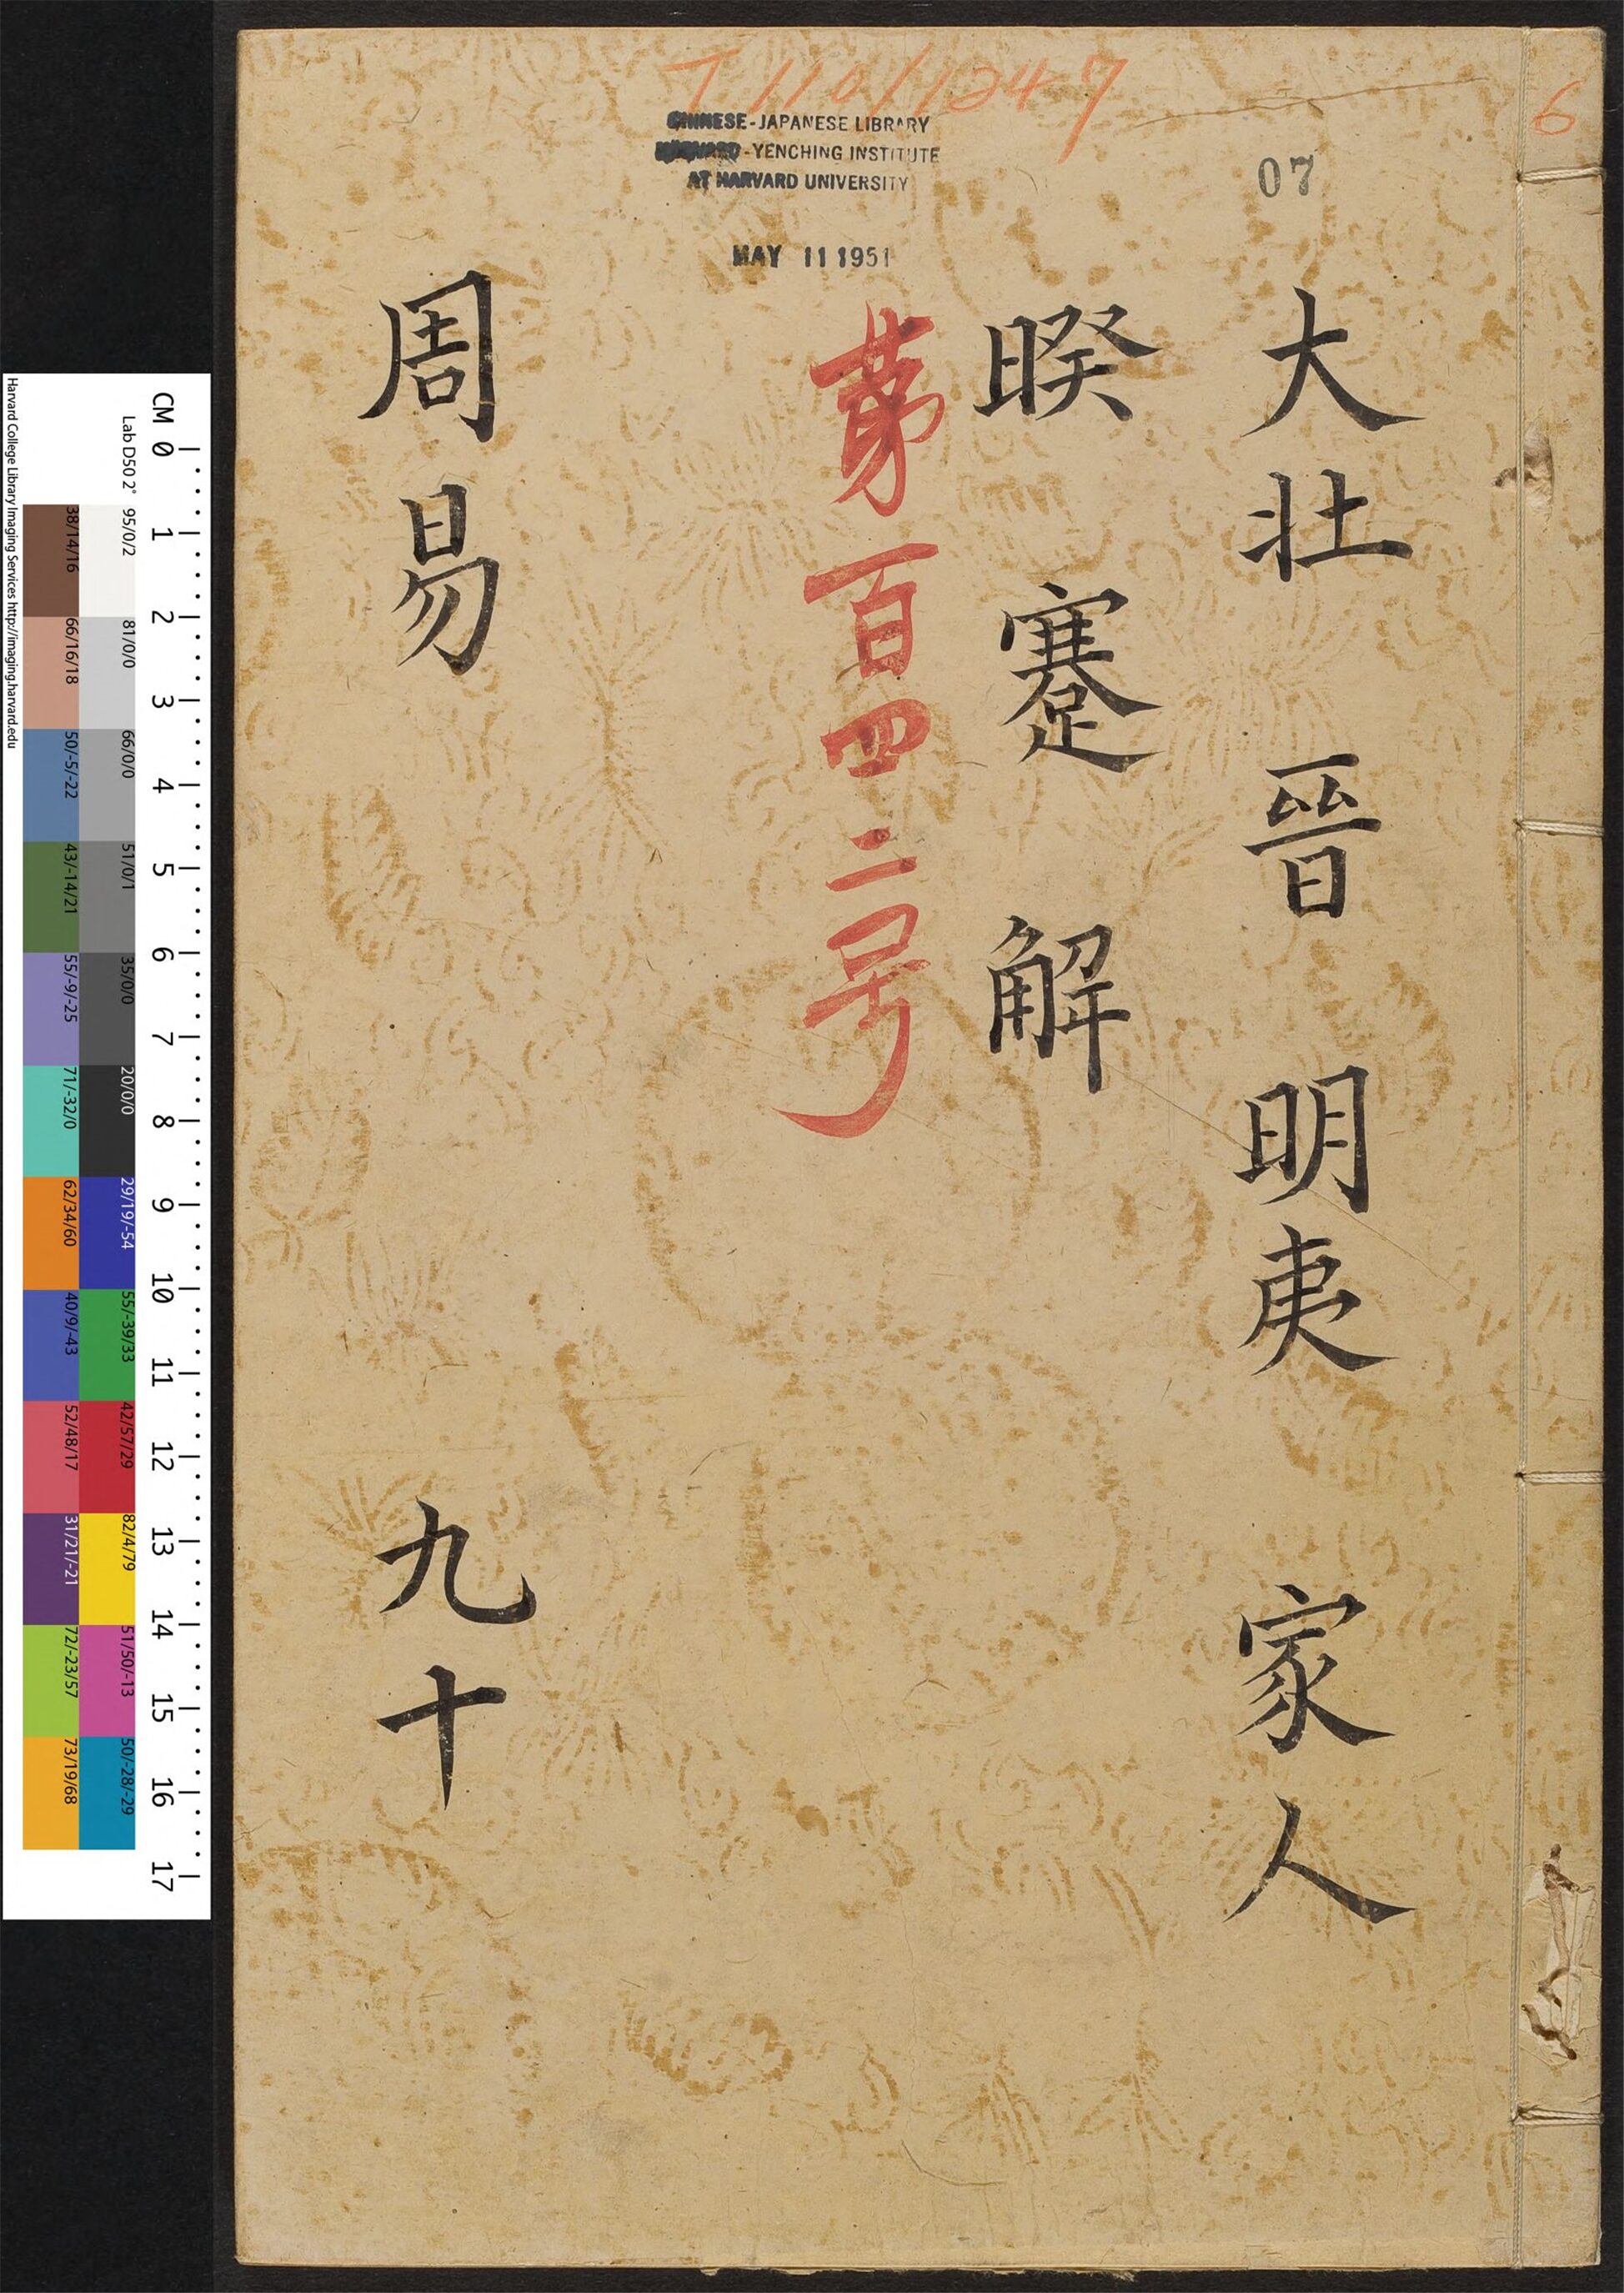 T 110/1247
6
CHINESE-JAPANESE LIBRARY
HARVARD-YENCHING INSTITUTE
AT HARVARD UNIVERSITY
MAY 11 1951
07
大壮 晉 明夷 家人
暌 蹇 解
第百四二号
周易 九十
CM 0 1 2 3 4 5 6 7 8 9 10 11 12 13 14 15 16 17
Lab D50 2° 95/0/2 81/0/0 66/0/0 51/0/1 35/0/0 20/0/0 29/19/-54 55/-39/33 42/57/29 82/4/79 51/50/-13 50/-28/-29
38/14/16 66/16/18 50/-5/-22 43/-14/21 55/-9/-25 71/-32/0 62/34/60 40/9/-43 52/48/17 31/21/-21 72/-23/57 73/19/68
Harvard College Library Imaging Services http://imaging.harvard.edu